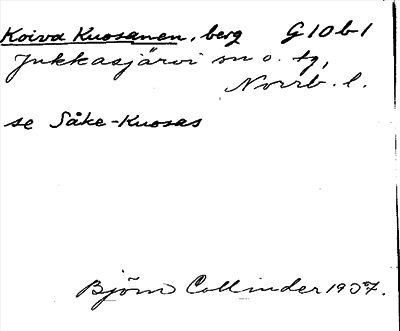 Koiva Kuosanen, berg G10b1
Jukkasjärvi sn o. tg,
Norrb. l.
se Såke-Kuosas
Björn Collinder 1937.